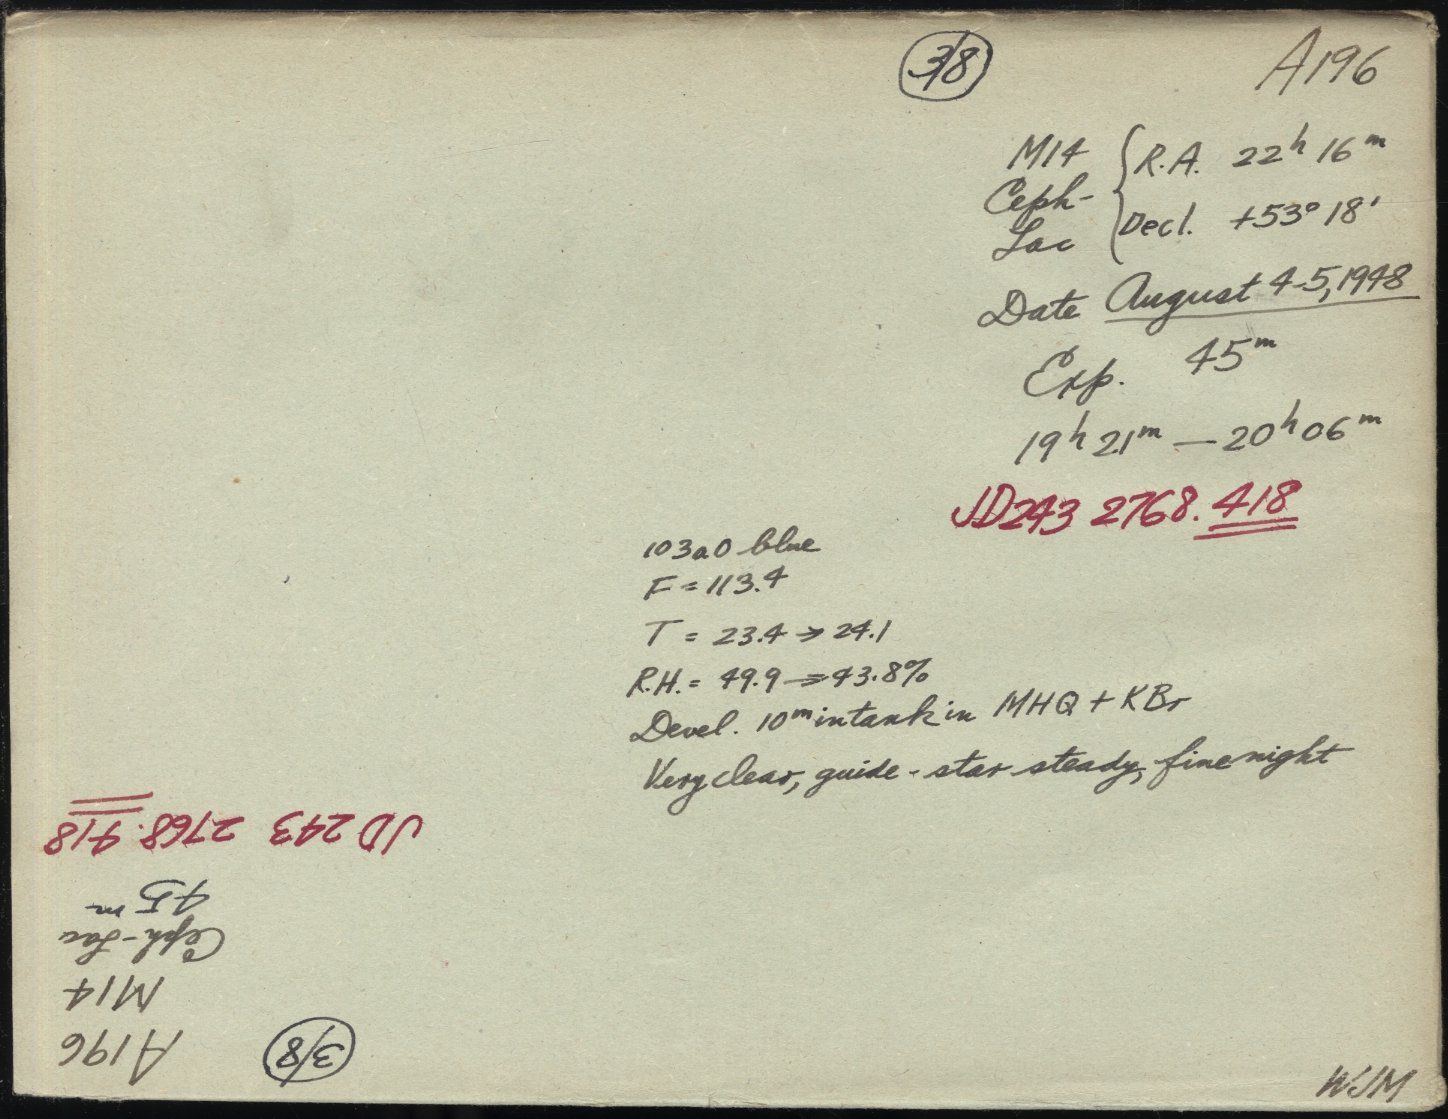 3/8
A196
M14 { R.A. 22h 16m
Ceph-
Lac Decl. +53° 18'
Date August 4-5, 1948
Exp. 45m
19h 21m — 20h 06m
JD243 2768.418
103a0 blue
F = 113.4
T = 23.4 → 24.1
R.H. = 49.9 → 43.8%
Devel. 10m in tank in MHQ + KBr
Very clear, guide-star steady, fine night
JD 243 2768.418
45m
Ceph-Lac
M14
A196
3/8
WJM